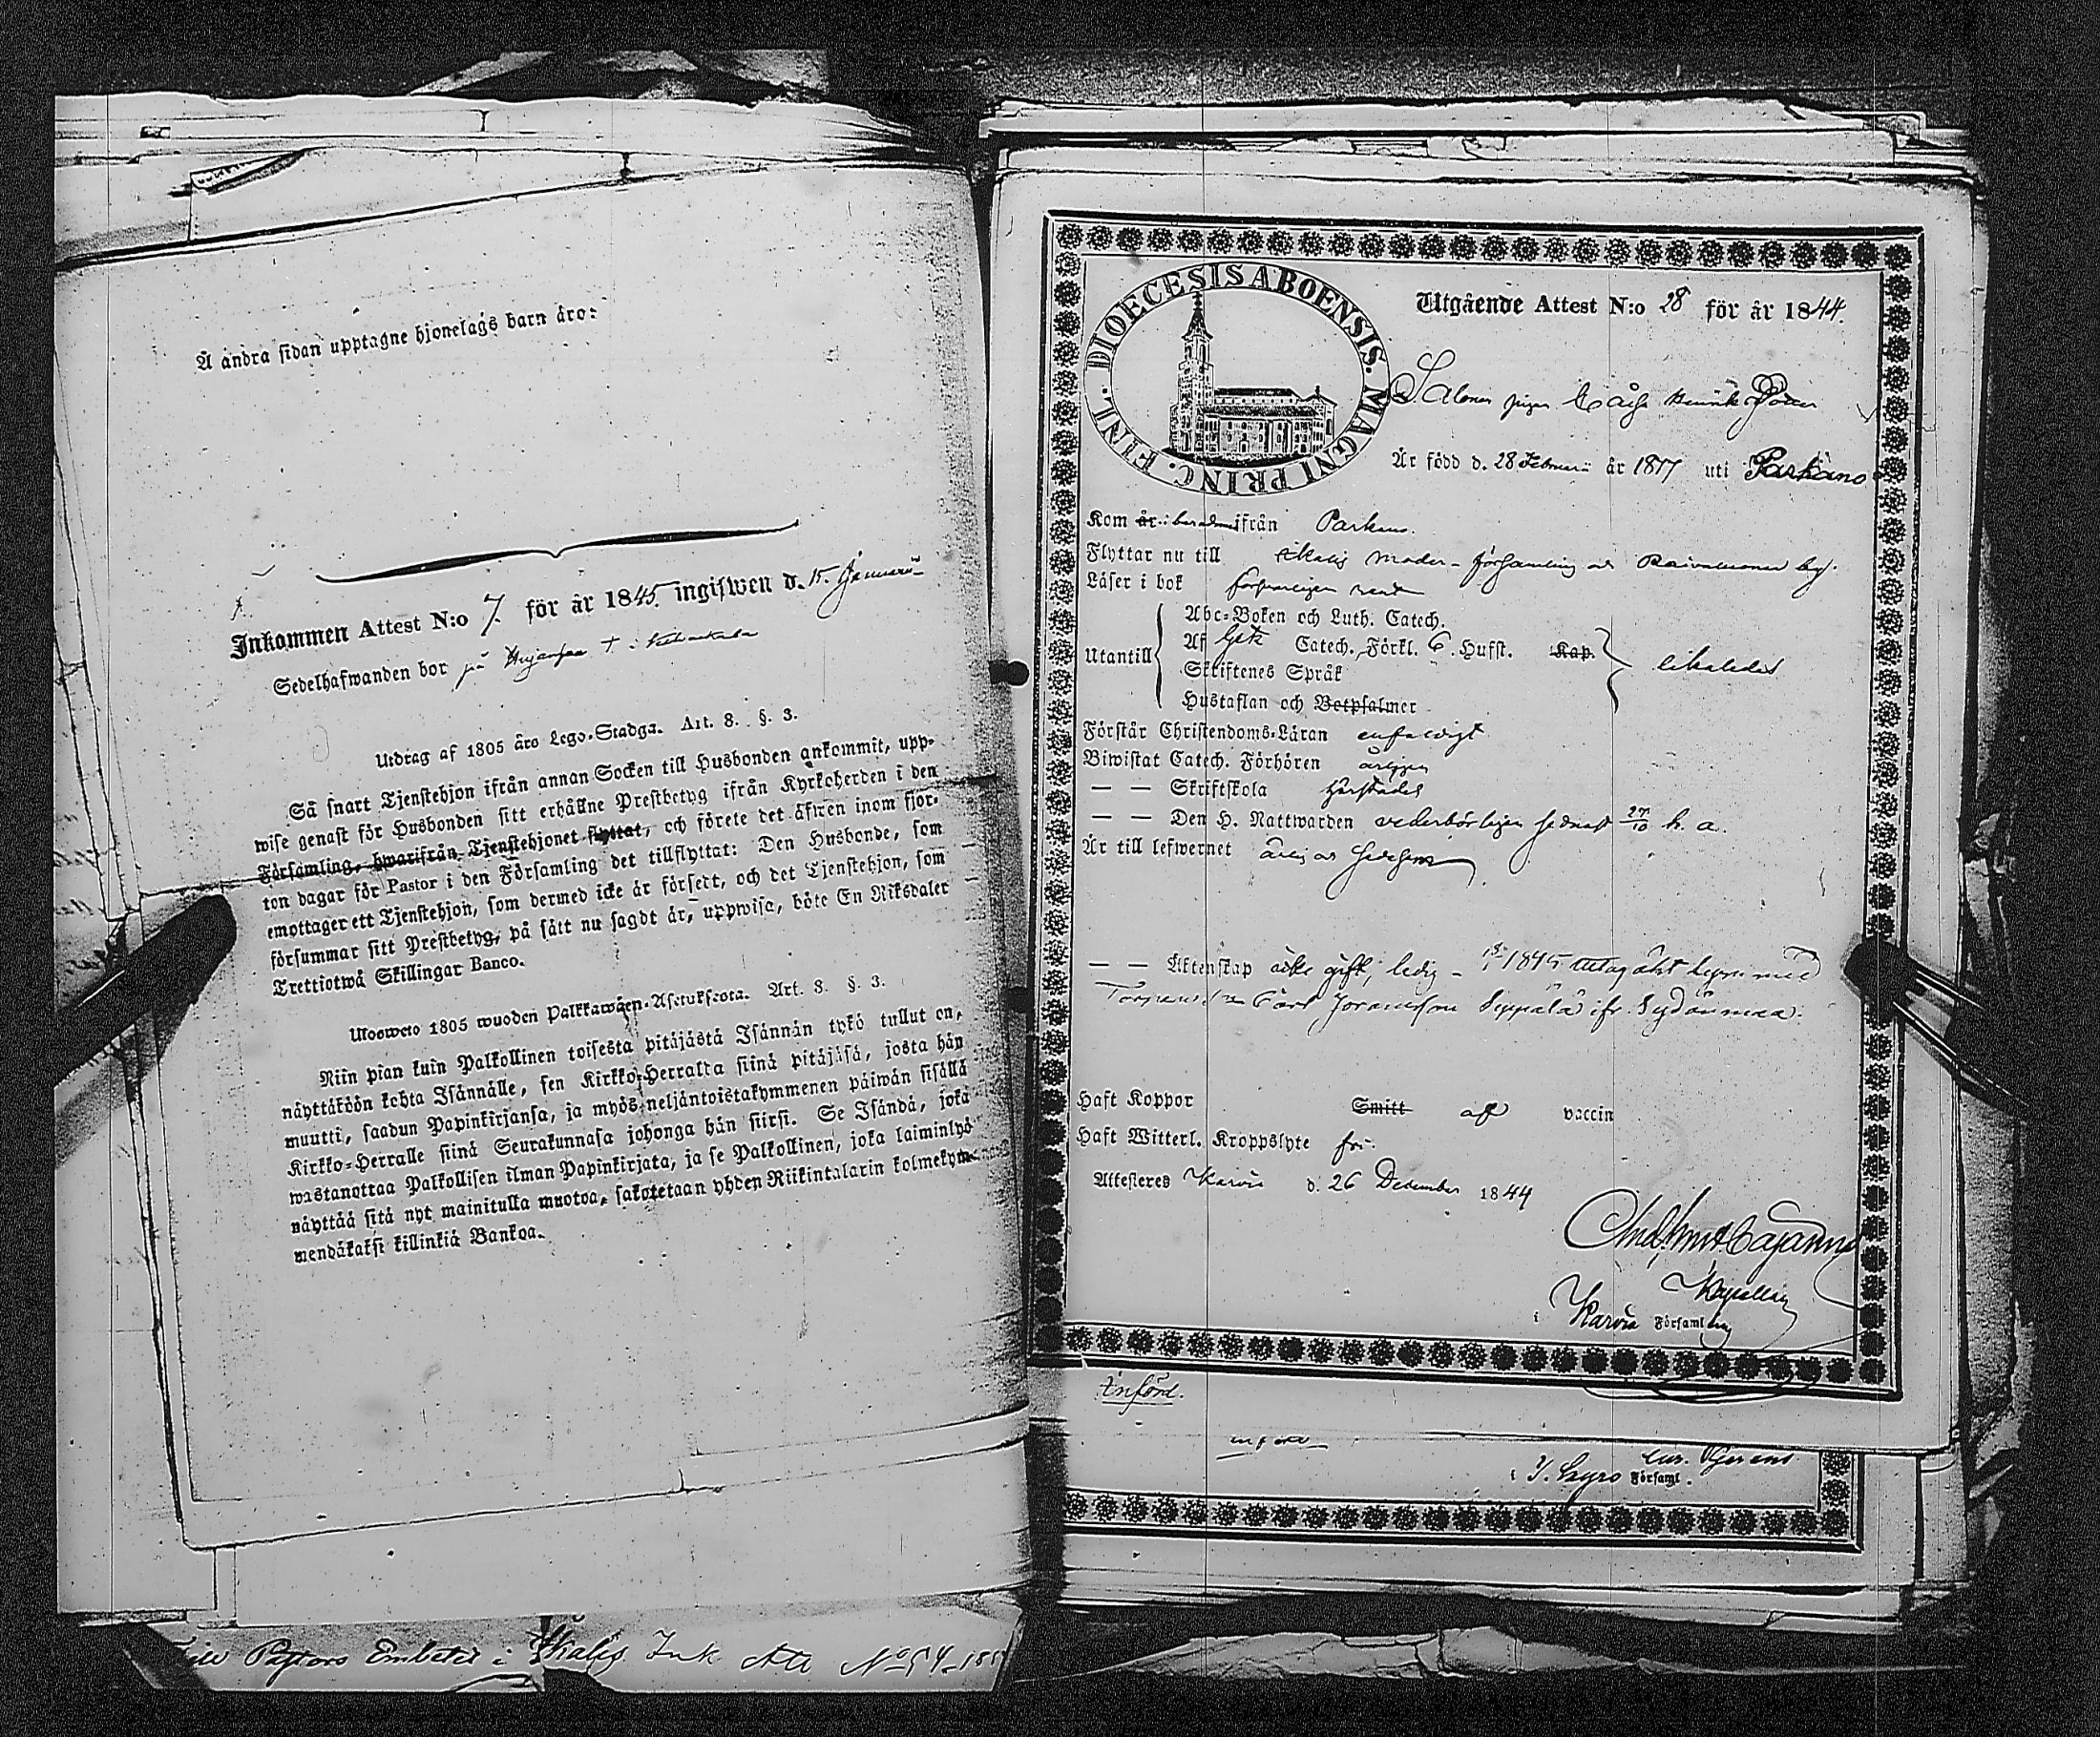 Å andra sidan upptagne hjonelags barn äro:
Inkommen Attest N:o 7. för år 1845. ingifwen d. 15. Januarii
Sedelhafwanden bor på
Utdrag af 1805 åro Lego-Stadga. Art. 8. §. 3.
Så snart Tjenstehjon ifrån annan Socken till Husbonden ankommit, upp-
wise genast för Husbonden sitt erhållne Prestbetyg ifrån Kyrkoherden i den
Församling, hwarifrån Tjenstehjonet flyttat, och förete det äfwen inom fjor-
ton dagar för Pastor i den Församling det tillflyttat: Den Husbonde, som
emottager ett Tjenstehjon, som dermed icke är försedt, och det Tjenstehjon, som
försummar sitt Prestbetyg, på sätt nu sagdt är, uppwisa, böte En Riksdaler
Trettiotwå Skillingar Banco.
Ulosweto 1805 wuoden Palkkawäen-Asetuksesta. Art. 8. §. 3.
Niin pian kuin Palkollinen toisesta pitäjästä Isännän tykö tullut on,
näyttäköön kohta Isännälle, sen Kirkko-Herralta siinä pitäjäsä, josta hän
muutti, saadun Papinkirjansa, ja myös neljäntoistakymmenen päiwän sisällä
Kirkko-Herralle siinä Seurakunnasa johonga hän siirsi. Se Isändä, joka
wastanottaa Palkollisen ilman Papinkirjata, ja se Palkollinen, joka laiminlyö
näyttää sitä nyt mainitulla muotoa, sakotetaan yhden Riikintalarin kolmekym-
mendäkaksi killinkiä Bankoa.
Pastors Embetet i Ikalis Ink Att No 54
DIOECESIS ABOENSIS. MAGNI PRINC. FINL.
Utgående Attest N:o 28 för år 1844.
pigan Caisa Henriks Dotter
Är född d. 28 Februarii år 1817 uti Parkano
Kom år ifrån Parkano.
Flyttar nu till Ikalis Moder-församling och by.
Läser i bok
Utantill
Abc-Boken och Luth. Catech.
Af Catech. Förkl. 6. Hufst. Kap.
Skriftenes Språk
Hustaflan och Botpsalmer
likaledes
Förstår Christendoms-Läran enfaldigt
Biwistat Catech. Förhören årligen
— — Skriftskola härstädes
— — Den H. Nattwarden vederbörligen sednast 27/10 h. a.
Är till lefwernet ärlig och
— — Äktenskap icke gift, ledig - 1845
Carl Seppälä ifr. Sydänmaa.
Haft Koppor Smitt af vaccin
Haft Witterl. Kroppslyte fri.
Attesteres Karvia d. 26 December 1844
Cajanus
Kapellan
i Karvia Församling
Införd.
införd
i T. Kyro Församl.